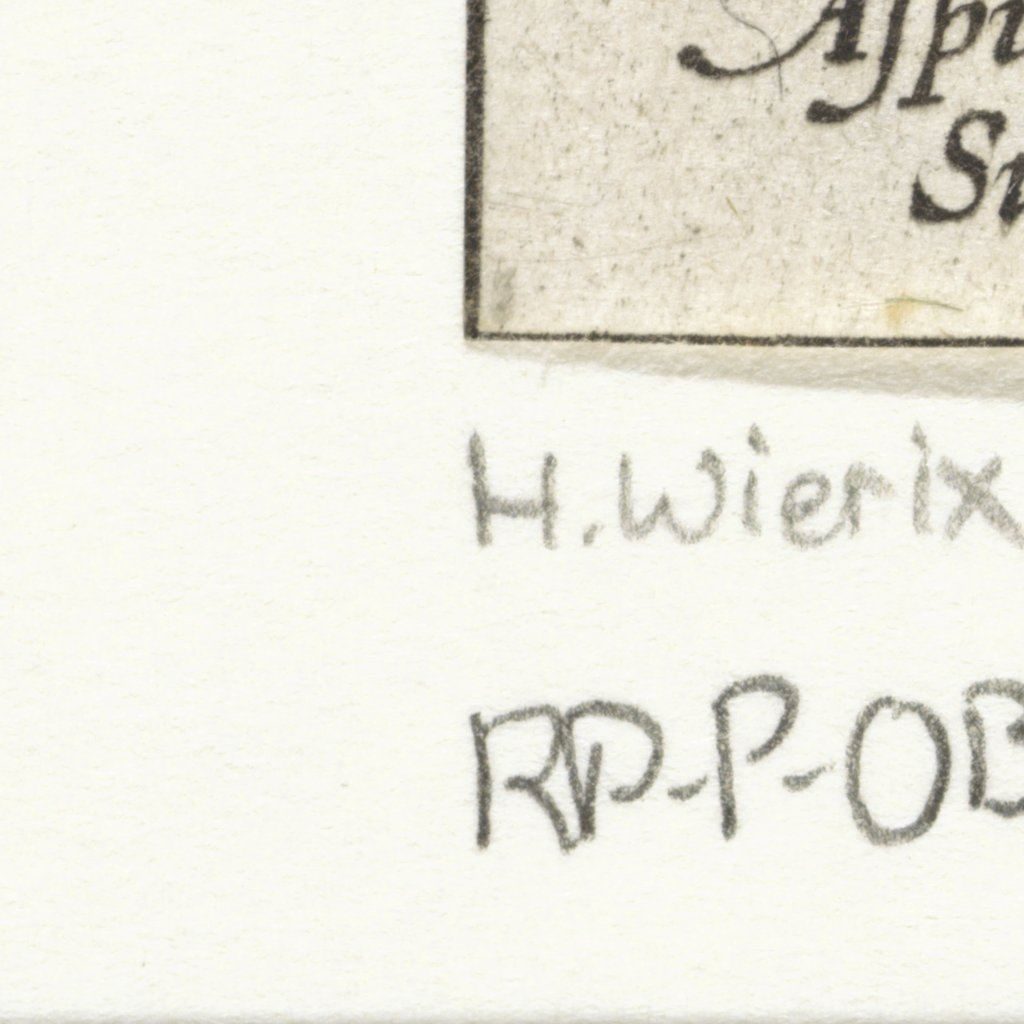 Aſpi
Su
H. Wierix
RP-P-OB